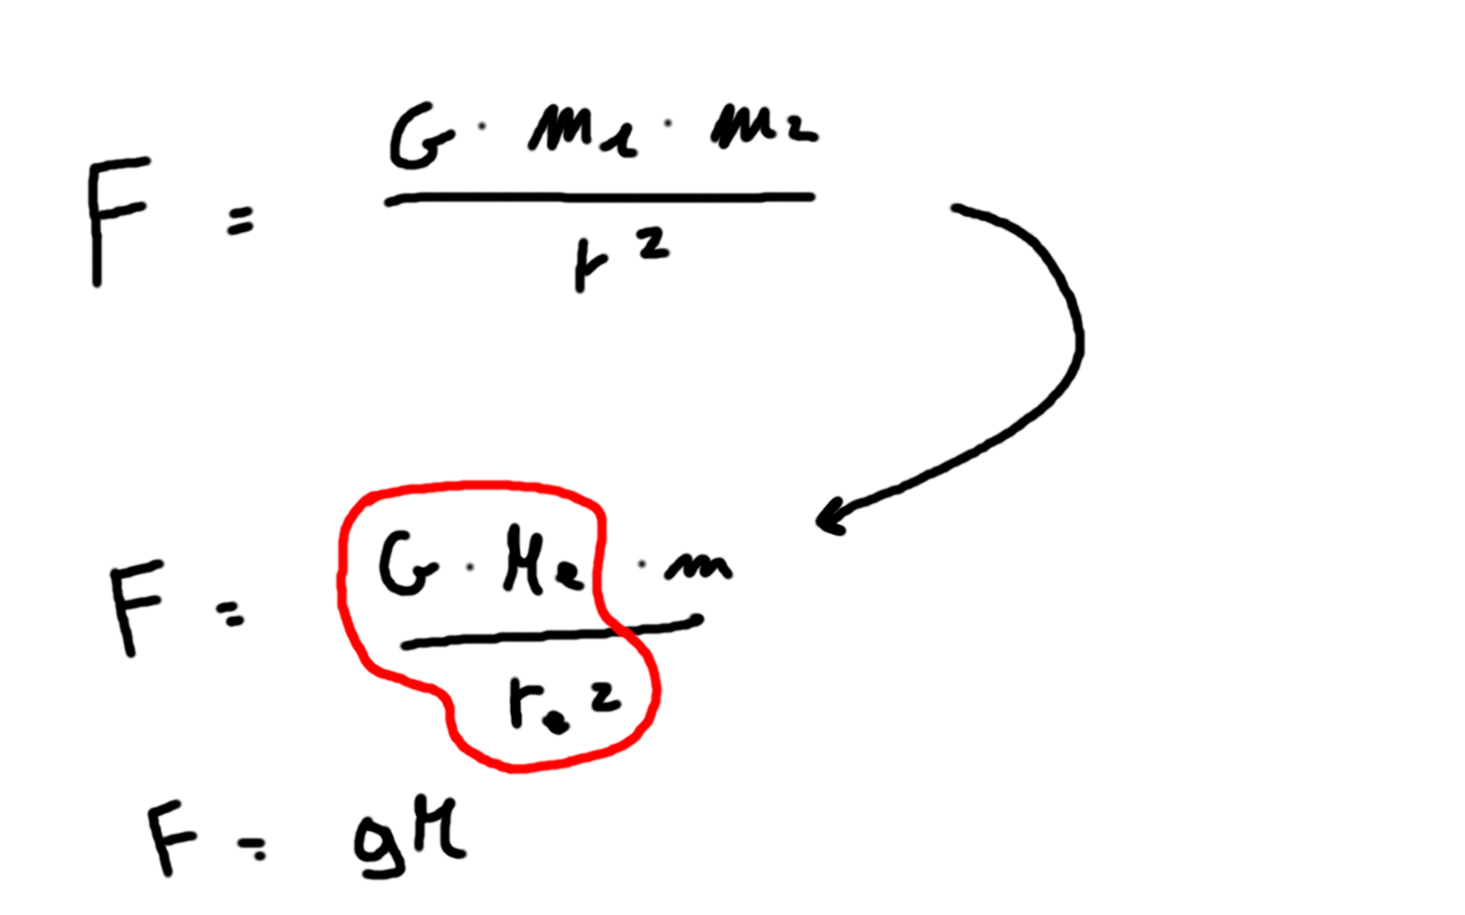 F = G · m₁ · m₂ / r²
F = G · Mₑ · m / rₑ²
F = gM